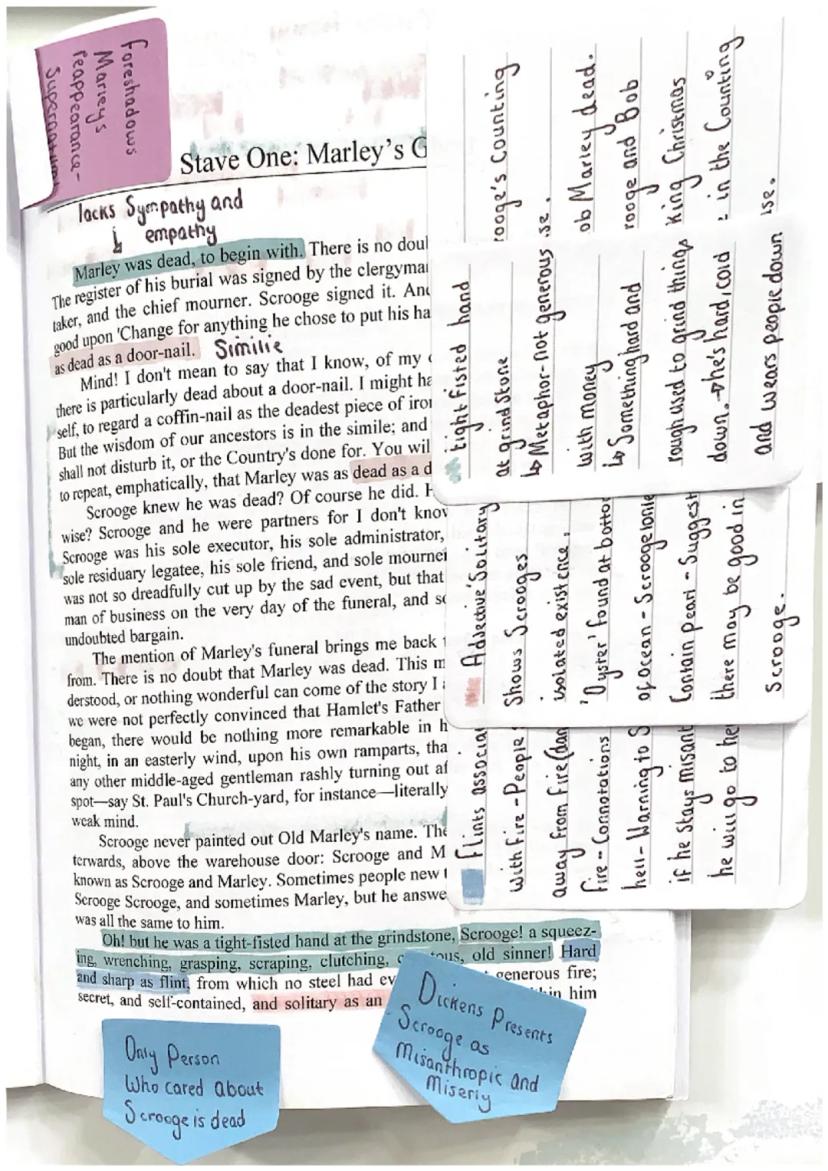 Foreshadows
Marley's
reappearance-
Supernatural
Stave One: Marley's G
lacks Sympathy and
empathy
Marley was dead, to begin with. There is no doul
The register of his burial was signed by the clergyma
taker, and the chief mourner. Scrooge signed it. And
good upon 'Change for anything he chose to put his ha
as dead as a door-nail. Similie
Mind! I don't mean to say that I know, of my
there is particularly dead about a door-nail. I might ha
self, to regard a coffin-nail as the deadest piece of iron
But the wisdom of our ancestors is in the simile; and
shall not disturb it, or the Country's done for. You wil
to repeat, emphatically, that Marley was as dead as a d
Scrooge knew he was dead? Of course he did. H
wise? Scrooge and he were partners for I don't know
Scrooge was his sole executor, his sole administrator,
sole residuary legatee, his sole friend, and sole mourner
was not so dreadfully cut up by the sad event, but that
man of business on the very day of the funeral, and so
undoubted bargain.
The mention of Marley's funeral brings me back
from. There is no doubt that Marley was dead. This m
derstood, or nothing wonderful can come of the story I
we were not perfectly convinced that Hamlet's Father
began, there would be nothing more remarkable in h
night, in an easterly wind, upon his own ramparts, tha
any other middle-aged gentleman rashly turning out af
spot—say St. Paul's Church-yard, for instance—literally
weak mind.
Scrooge never painted out Old Marley's name. The
terwards, above the warehouse door: Scrooge and M
known as Scrooge and Marley. Sometimes people new
Scrooge Scrooge, and sometimes Marley, but he answe
was all the same to him.
Oh! but he was a tight-fisted hand at the grindstone, Scrooge! a squeez-
ing, wrenching, grasping, scraping, clutching, c tous, old sinner! Hard
and sharp as flint, from which no steel had ev generous fire;
secret, and self-contained, and solitary as an hin him
rooge's Counting
se.
ob Marley dead.
rooge and Bob
king Christmas
in the Counting
use.
tight fisted hand
at grindstone
↳ Metaphor- not generous
with money
↳ Something hard and
rough used to grind things
down. → he's hard, cold
and wears people down
Adjective 'Solitary'
Shows Scrooges
isolated existence,
'Oyster' found at bottom
of ocean - Scrooge lonle
Contain pearl - Suggest
there may be good in
Scrooge.
Flints associat
with Fire - People
away from Fire (dan
fire - Connotations
hell - Warning to S
if he stays misant
he will go to he
Only Person
Who cared about
Scrooge is dead
Dickens Presents
Scrooge as
Misanthropic and
Miserly